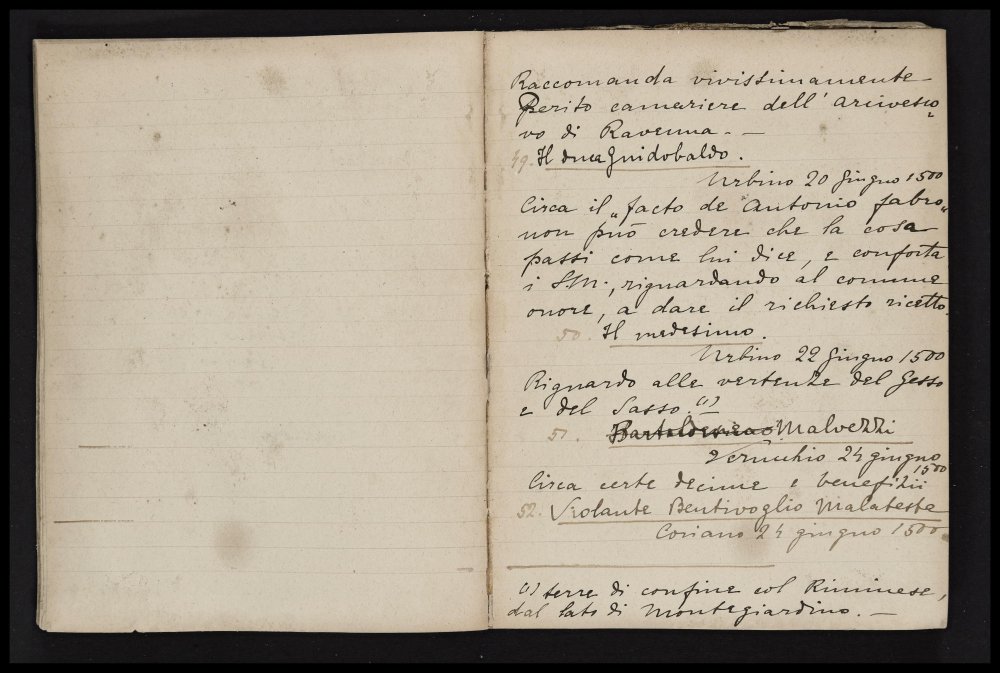 Raccomanda vivissimamente
Perito cameriere dell' arcivesco=
vo di Ravenna. —
49. Il duca Guidobaldo.
Urbino 20 Giugno 1500
Circa il „facto de Antonio fabro„
non può credere che la cosa
passi come lui dice, e conforta
i S.M., riguardando al comune
onore, a dare il richiesto ricetto.
50. Il medesimo.
Urbino 22 Giugno 1500
Riguardo alle vertenze del Gesso
e del Sasso. (1)
51. Malvezzi
Verucchio 24 giugno
1500
Circa certe decime e benefizii
52. Violante Bentivoglio Malatesta
Coriano 24 giugno 1500.
(1) terre di confine col Riminese,
dal lato di Montegiardino. —